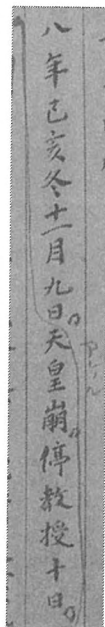 八年己亥冬十一月九日。天皇崩。停教授十日。